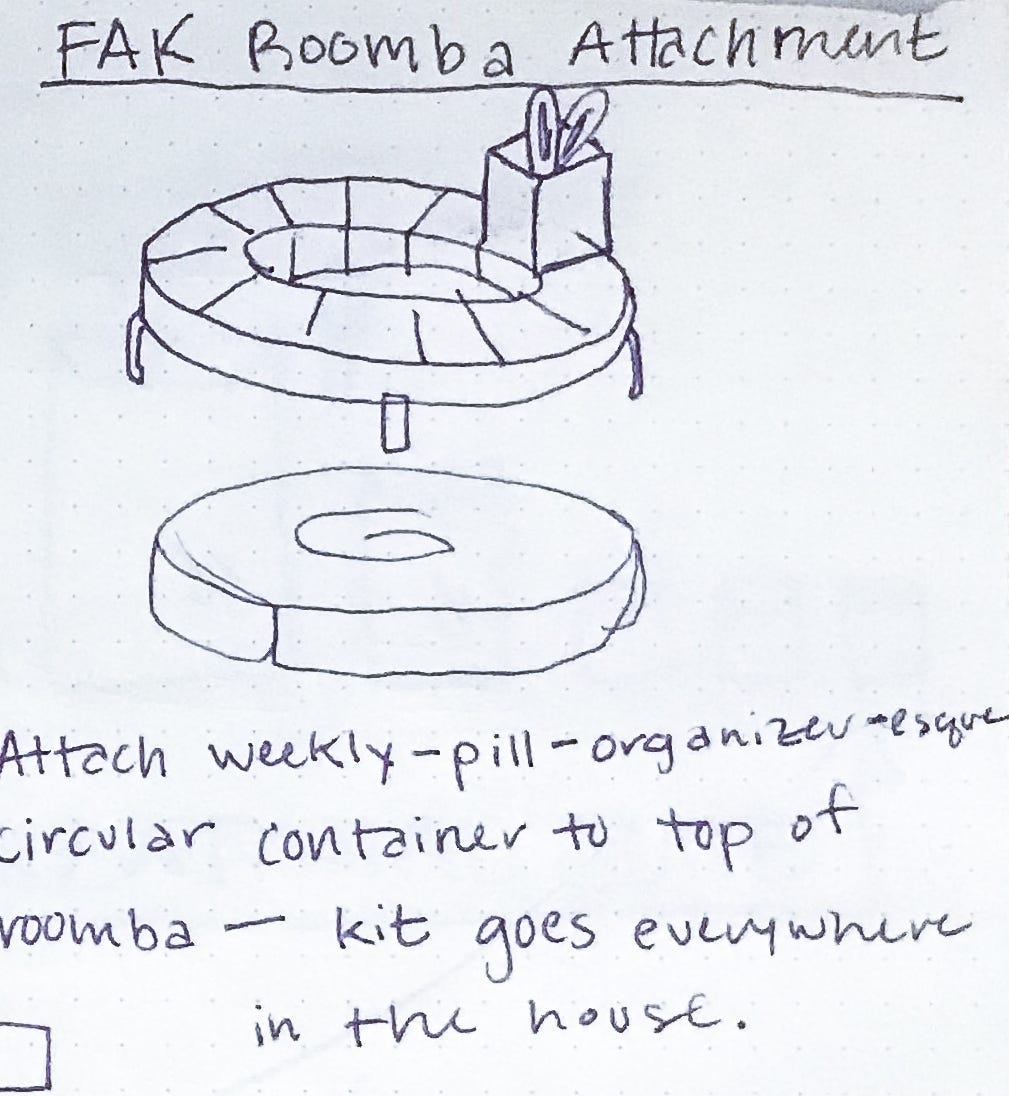 FAK Roomba Attachment
Attach weekly-pill-organizer-esque
circular container to top of
roomba — kit goes everywhere
in the house.